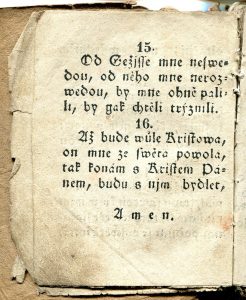 15.
Od Gežjsse mne neswe-
dou, od něho mne neroz-
wedou, by mne ohně pali-
li, by gak chtěli trýznili.
16.
Až bude wůle Kristowa,
on mne ze swěta powola,
tak konám s Kristem Pá-
nem, budu s njm bydlet,
Amen.